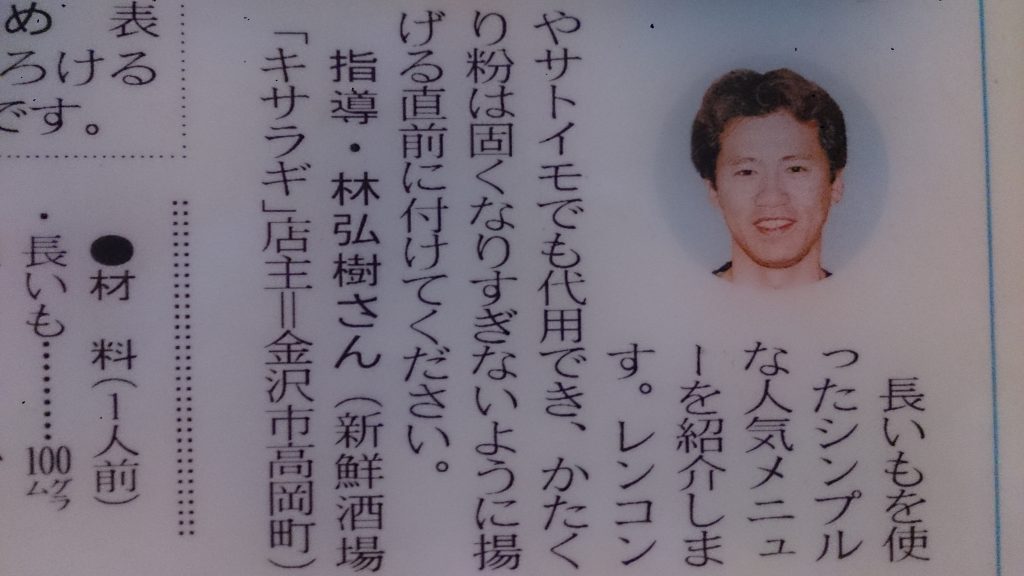 長いもを使
ったシンプル
な人気メニュ
ーを紹介しま
す。レンコン
やサトイモでも代用でき、かたく
り粉は固くなりすぎないように揚
げる直前に付けてください。
指導・林弘樹さん（新鮮酒場
「キサラギ」店主＝金沢市高岡町）
●材　料（１人前）
・長いも………100グラム
表
る
け
ろ
め
です。